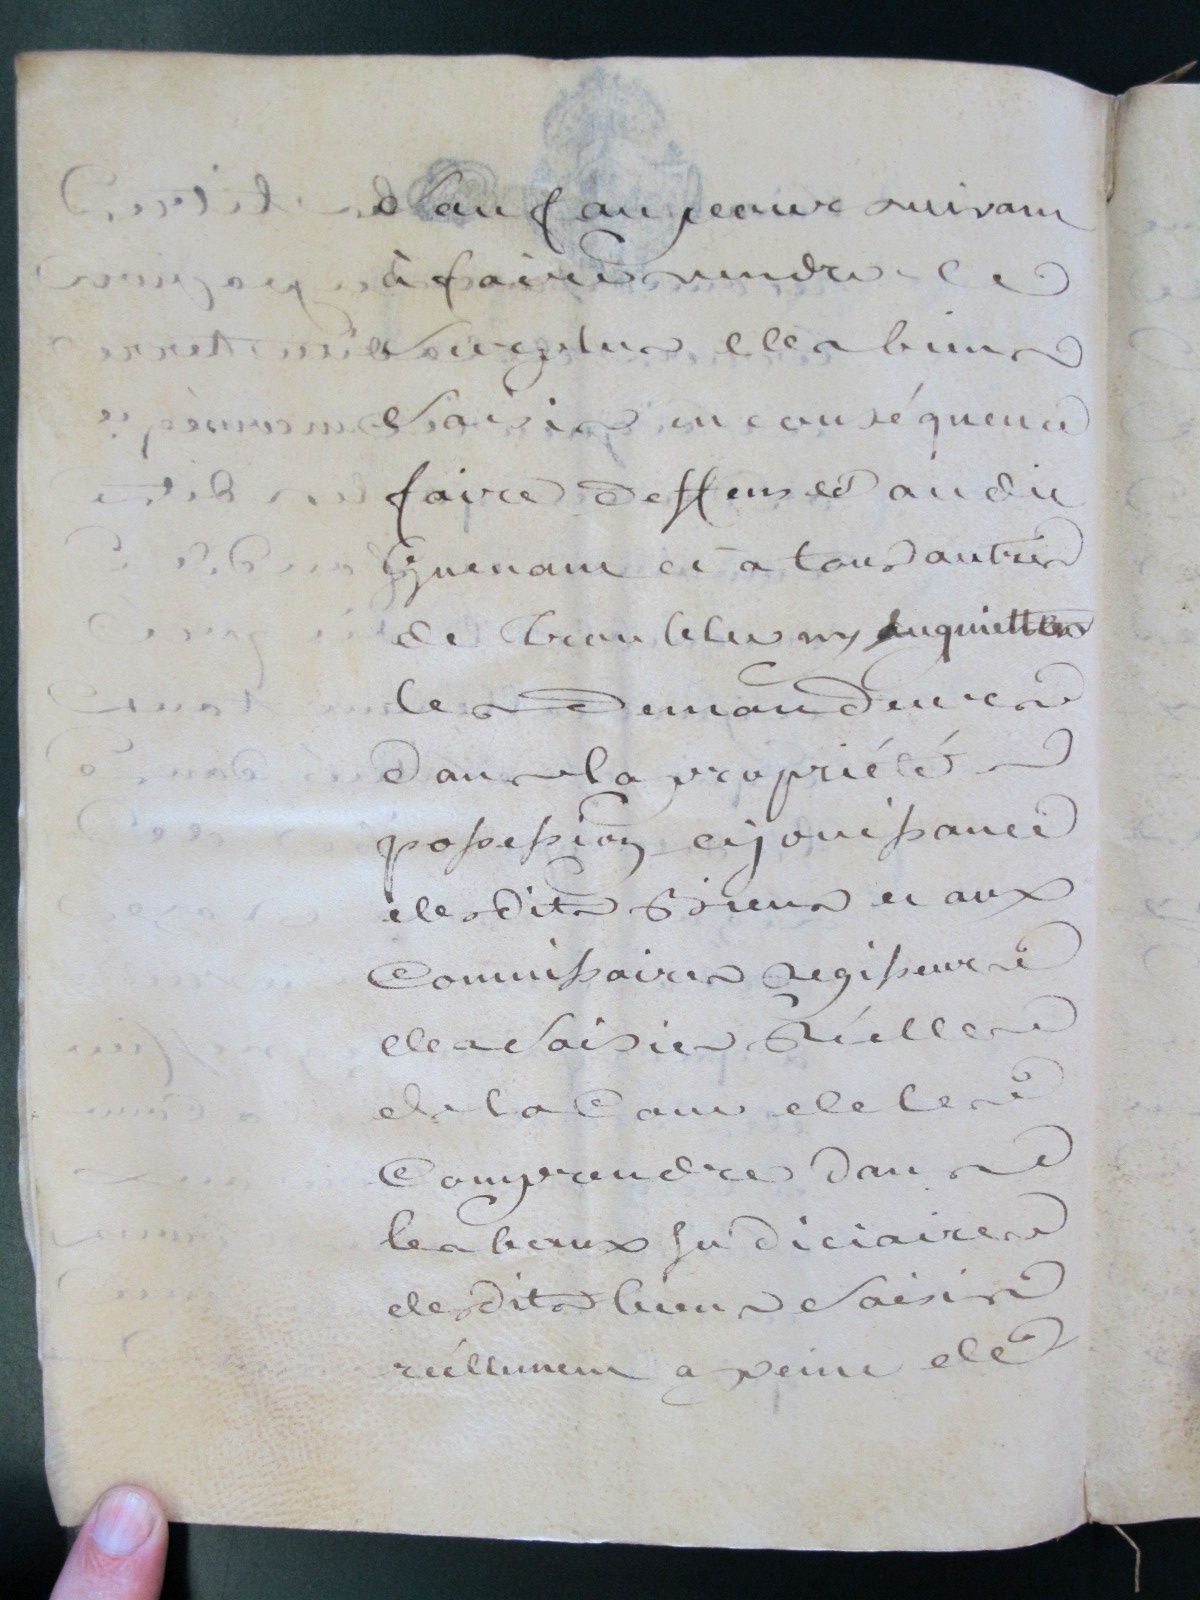 Sauf au poursuivant
à faire vendre le
Surplus des biens
Saisis en conséquence
faire deffenses audit
Guenant et a tous autres
de troubler ny Inquietter
les Demandeurs
dans la propriété
possession et jouissance
desdits biens et aux
Commissaires Regisseurs
des Saisies Réelles
de la Cour de les
Comprendre dans
les baux Judiciaires
desdits biens Saisis
réellement a peine de